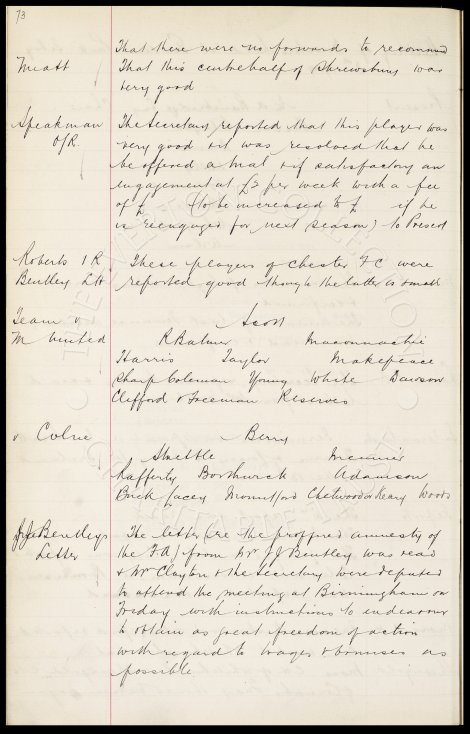 73
That there were no forwards to recommend
Miatt That this centrehalf of Shrewsbury was
very good
Speakman The Secretary reported that this player was
O/R. very good & it was resolved that he
be offered a trial & if satisfactory an
engagement at £2 per week with a fee
of £ (to be increased to £ if he
is reengaged for next season) to Prescot
Roberts I R These players of Chester F C were
Bentley LH reported good though the latter is small
Team v Scott
M United R Balmer Macconnachie
Harris Taylor Makepeace
Sharp Coleman Young White Dawson
Clifford & Freeman Reserves
v Colne Berry
Strettle Meunier
Rafferty Borthwick Adamson
Buck Lacey Mountford Chetwood or Keary Woods
J J Bentleys The letter (re the proffered amnesty of
Letter the F A) from Mr J J Bentley was read
& Mr Clayton & the Secretary were deputed
to attend the meeting at Birmingham on
Friday with instructions to endeavour
to obtain as great freedom of action
with regard to wages & bonuses as
possible